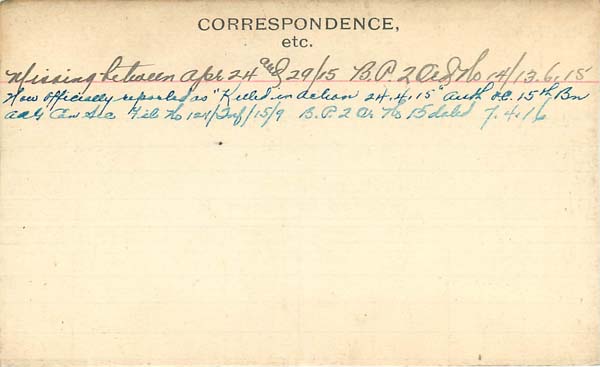 CORRESPONDENCE,
etc.
Missing between Apr 24 and 29/15 B.P. 2 Ord No 14/13.6.15
Now officially reported as "Killed in action 24.4.15" auth O.C. 15th Bn
File No 15/9 B.P.2 Or. No 15 dated 7.4.16